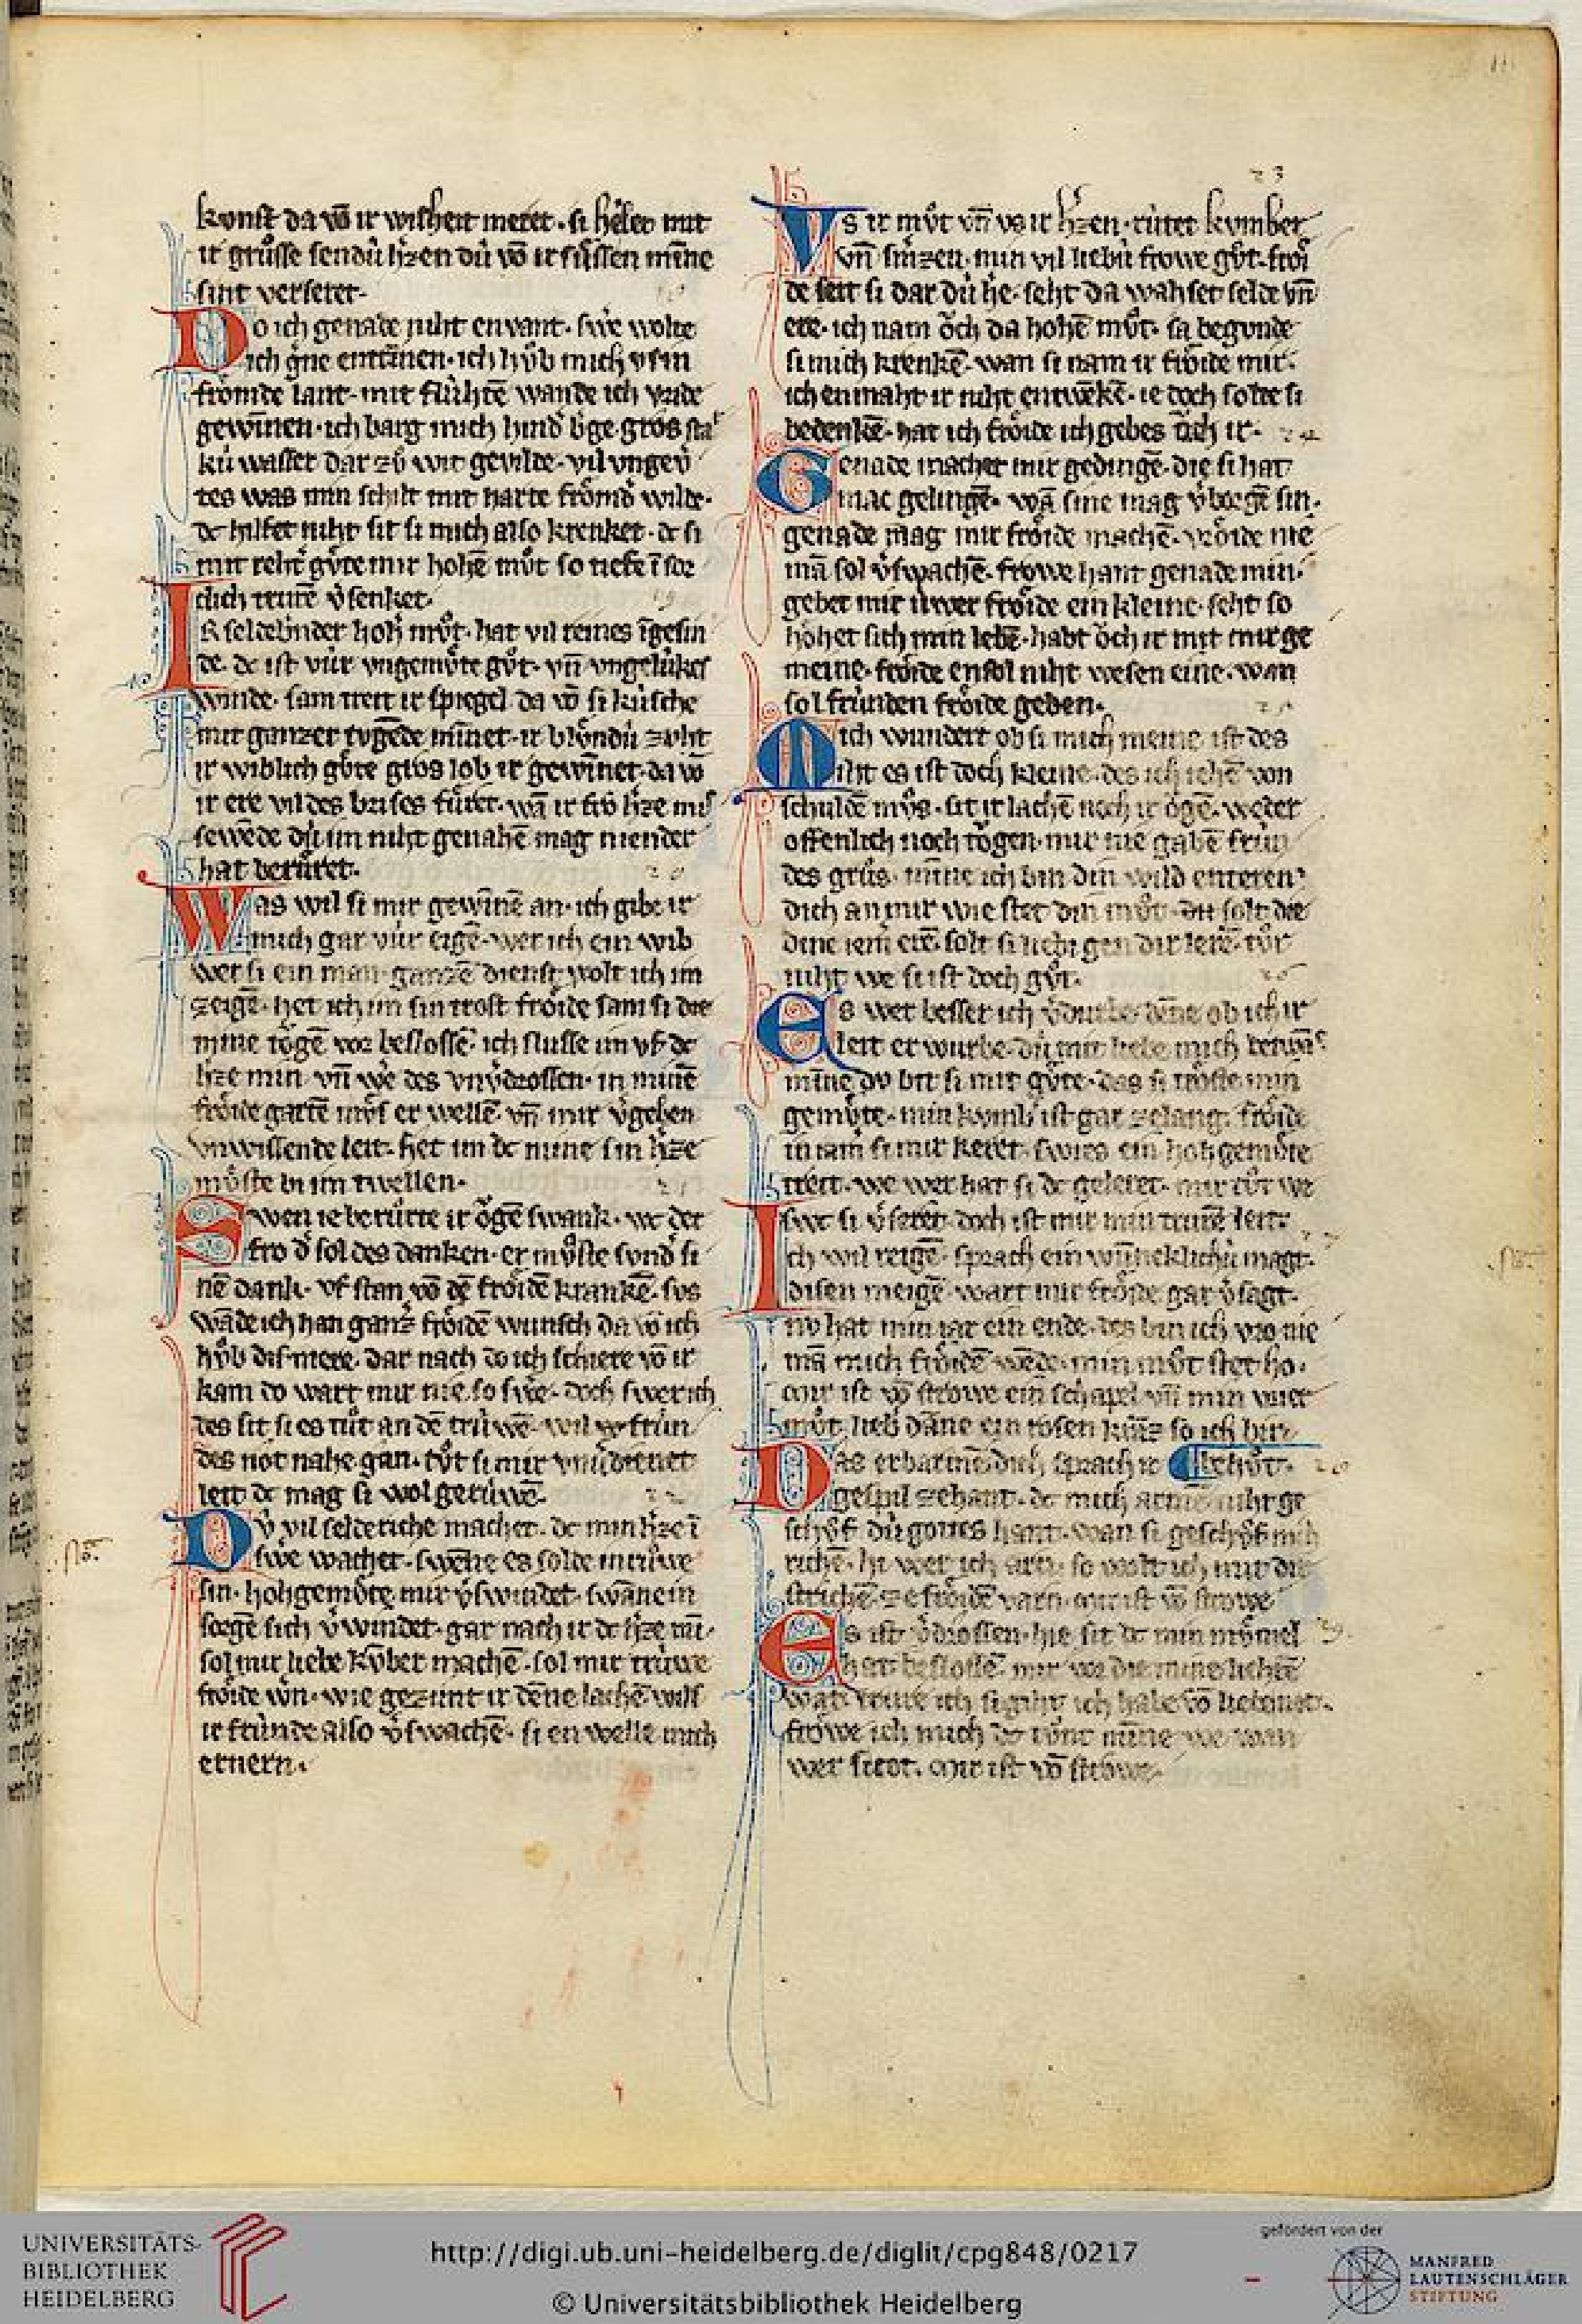 kunst da vō ir wisheit meret · si heilet mit
ir grůsse sendú h̾zen dú vō ir sůssen mīne
sint verseret·
Do ich genade niht envant · swie wolte
ich g̾ne entrinnen · ich hůb mich vf in
frömde lant · mit flúhtē wande ich vride
gewinnen · ich barg mich hind̾ b̾ge gros sta
kú wasser dar zů wit gevilde · vil vngev̾
tes was min schilt mit harte frömd̾ wilde·
dc hilfet niht sit si mich also krenket · dc si
mit reht̾ gůte mir hohē můt so tiefe ī sor
clich trurē v̾senket·
Ir seldebernder hoh̾ můt · hat vil reines īgesin
de · dc ist vúr vngemůte gůt · vn̄ vngelúkes
winde · sam treit ir spiegel da vō si kúsche
mit ganzer tugēde mīnet · ir blöndú zuht
ir wiblich gůte gros lob ir gewīnet · da vō
ir ere vil des brises fůret · wā ir fro h̾ze mis
sewēde dú im niht genahē mag niender
hat berůret·
Was wil si mir gewinē an · ich gibe ir
mich gar vúr eigē · wer ich ein wib
wer si ein man ganzē dienst wolt ich im
zeigē · het ich im sin trost fröide sam si die
mine tögē vor beslossē · ich slusse im vf dc
h̾ze min vn̄ we des vnv̾drossen · in minē
fröide gartē můs er wellē · vn̄ mir v̾geben
vnwissende leit · het im dc mine sin h̾ze
můste bi im twellen·
Swen ie berůrte ir ögē swank · wc der
fro d̾ sol des danken · er můste sund̾ si
nē dank · vf stan vō dē fröidē krankē · sus
wāde ich han ganz̾ fröidē wunsch da vō ich
hůb dis mere · dar nach do ich schiere vō ir
kam do wart mir nie so swe · doch swer ich
des sit si es tůt an dē trúwē · wil ir frún
des not nahe gan · tůt si mir vnv̾dienet
leit dc mag si wol gerúwē·
Dv vil selderiche machet · dc min h̾ze ī
swe wachet · swēne es solde in růwe
sin · hohgemůte mir v̾swindet · swāne in
sorgē sich v̾windet · gar nach ir dc h̾ze mī·
sol mir liebe kūber machē · sol mir trúwe
fröide w̾n · wie gezimt ir dēne lachē wils
ir frúnde also v̾swachē · si en welle mich
ernern·
23
Vs ir můt vn̄ vs ir h̾zen · rūtet kvmber
vn̄ smerzen · min vil liebú frowe gůt · fröi
de seit si dar dú he · seht da wahset selde vn̄
ere · ich nam öch da hohē můt · sa begvnde
si mich krenkē · wan si nam ir fröide mir·
ich en maht ir niht entwēkē · ie doch solde si
bedenkē · hat ich fröide ich gebes öch ir· 24
Genade machet mir gedinge · die si hat
mac gelingē · wā sine mag v̾borgē sin·
genade mag mir fröide machē · vröide nie
mā sol v̾swachē · frowe hant genade min·
gebet mir úwer fröide ein kleine · seht so
höhet sich min lebē · habt öch ir mit mir ge
meine · fröide ensol niht wesen eine · wan
sol frúnden fröide geben·
Mich wundert ob si mich meine · ist des
niht es ist doch kleine · des ich iehē von
schuldē můs · sit ir lachē noch ir ögē · weder
offenlich noch tögen · mir nie gabē frún
des grůs · mīne ich bin din wild enteren
dich an mir wie stet din můt · du solt die
dine iem̾ erē · solt si niht gen dir lerē · tůt
niht we si ist doch gůt·
Es wer besser ich v̾durbe dēne ob ich ir
leit erwurbe · dú mit liebe mich betwāc
mīne du bit si mit gůte · das si tröste min
gemůte · min kumb̾ ist gar ze lang · fröide
in iam̾ si mir keret · swies ein hohgemůte
treit · we wer hat si dc geleret · mir tůt we
swc si v̾seret · doch ist mir min trurē leit·
Ich wil reigē · sprach ein wūneklichú magt·
disen meigē · wart mir fröide gar v̾sagt·
nv hat min iar ein ende · des bin ich vro nie
mā mich fröidē wēde · min můt stet ho·
mir ist vō strowe ein schapel · vn̄ min vrier
můt · lieb̾ dāne ein rosen kranz so ich bin
Das erbarme dich sprach ir behůt·
gespil zehant · dc mich arme niht ge
schůf · dú gottes hant · wan si geschůf mich
richē · hi wer ich arn · so wolt ich mit dir
strichē · ze fröidē varn · mir ist vō strowe
Es ist v̾drossen · hie sit dc min můmel
hat beslossē · mir vor die mine liehtē
wat · trure ich si giht ich habe vō liebe not·
fröwe ich mich dc tůnt mīne · we wan
wer si tot · mir ist vō strowe·
UNIVERSITÄTS-
BIBLIOTHEK
HEIDELBERG
http://digi.ub.uni-heidelberg.de/diglit/cpg848/0217
© Universitätsbibliothek Heidelberg
gefördert von der
MANFRED
LAUTENSCHLÄGER
STIFTUNG